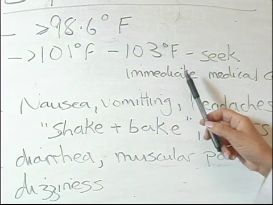 - >98.6° F
- >101°F - 103°F - seek
immediate medical
Nausea, vomitting, headaches
"shake + bake"
diarrhea, muscular
dizziness